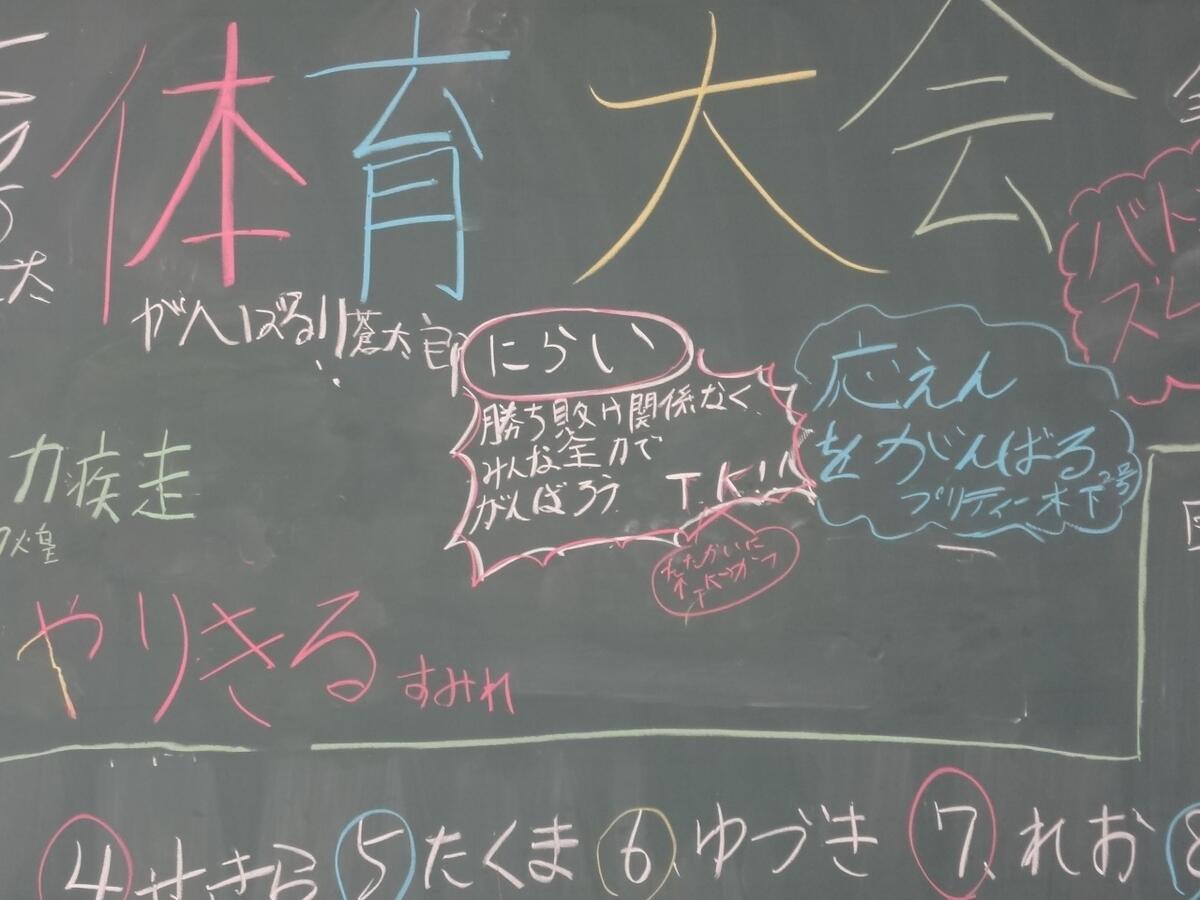 体育大会
がんばる!! 蒼太郎
にらい
勝ち敗け関係なく
みんな全力で
がんばろう T.K!!
応えん
をがんばる
プリティー木下2号
バト
ズレ
力疾走
煌
やりきる すみれ
④せきら ⑤たくま ⑥ゆづき ⑦れお ⑧